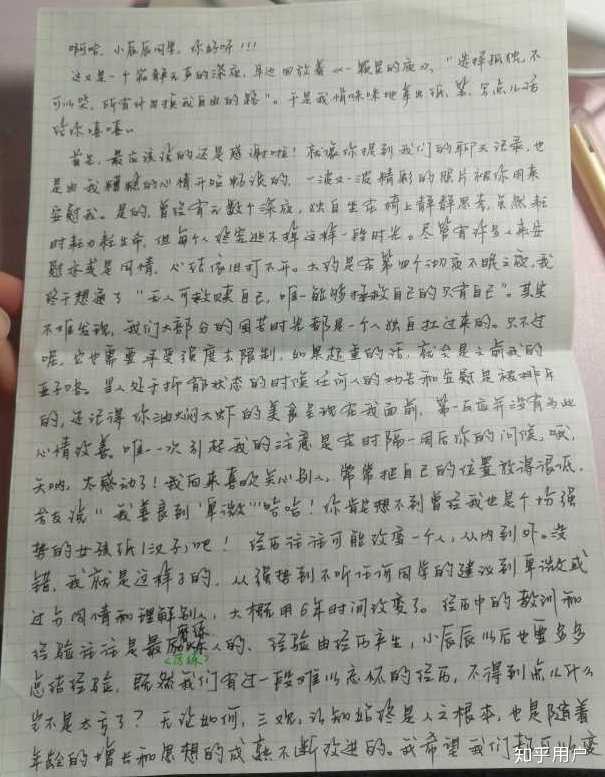 啊哈,小辰辰同学,你好呀!!!
这又是一个寂静无声的深夜,耳边回放着《一颗星的夜》,“选择孤独,不
可以哭,所有计出损我自由的路”。于是我悄咪咪地拿出纸、笔,写点儿话
给你嘻嘻。
首先,最应该说的还是感谢啦!就像你提到我们的聊天记录,也
是由我糟糕的心情开始畅谈的,一波又一波精彩的照片被你用来
安慰我。是的,曾经有无数个深夜,独自坐在椅上静静思考,虽然耗
时耗力耗生命,但每个人终究逃不掉这样一段时光。尽管有许多人来安
慰亦或是同情,心结依旧打不开。大约是在第四个彻夜不眠之夜,我
终于想通了“无人可救赎自己,唯一能够拯救自己的只有自己”。其实
不难发现,我们大部分的困苦时光都是一个人独自扛过来的。只不过
呢,它也需要承受强度去限制,如果超重的话,就会是之前我的
当人处于折磨状态的时候任何人的劝告和安慰是被排斥
的,还记得你油焖大虾的美食呈现在我面前,第一反应并没有为此
心情改善,唯一一次引起我的注意是在时隔一周后你的问候,哦,
天呐,太感动了!我向来喜欢关心别人,常常把自己的位置放得很低,
老友说“我善良到‘卑微’”哈哈!你肯定想不到曾经我也是个十分强
势的女孩纸(汉子)吧!经历往往可能改变一个人,从内到外。没
错,我就是这样子的,从强势到不听话询同学的建议到卑微或
过与同情和理解别人,大概用6年时间改变了。经历中的教训和
经验往往是最磨练人的、经验由经历产生,小辰辰以后也要多多
(历练)
总结经验,既然我们有过一段难以忘怀的经历,不得到点儿什么
岂不是太亏了?无论如何,三观,认知始终是人之根本,也是随着
年龄的增长和思想的成熟不断改进的。我希望我们都可以变
知乎用户